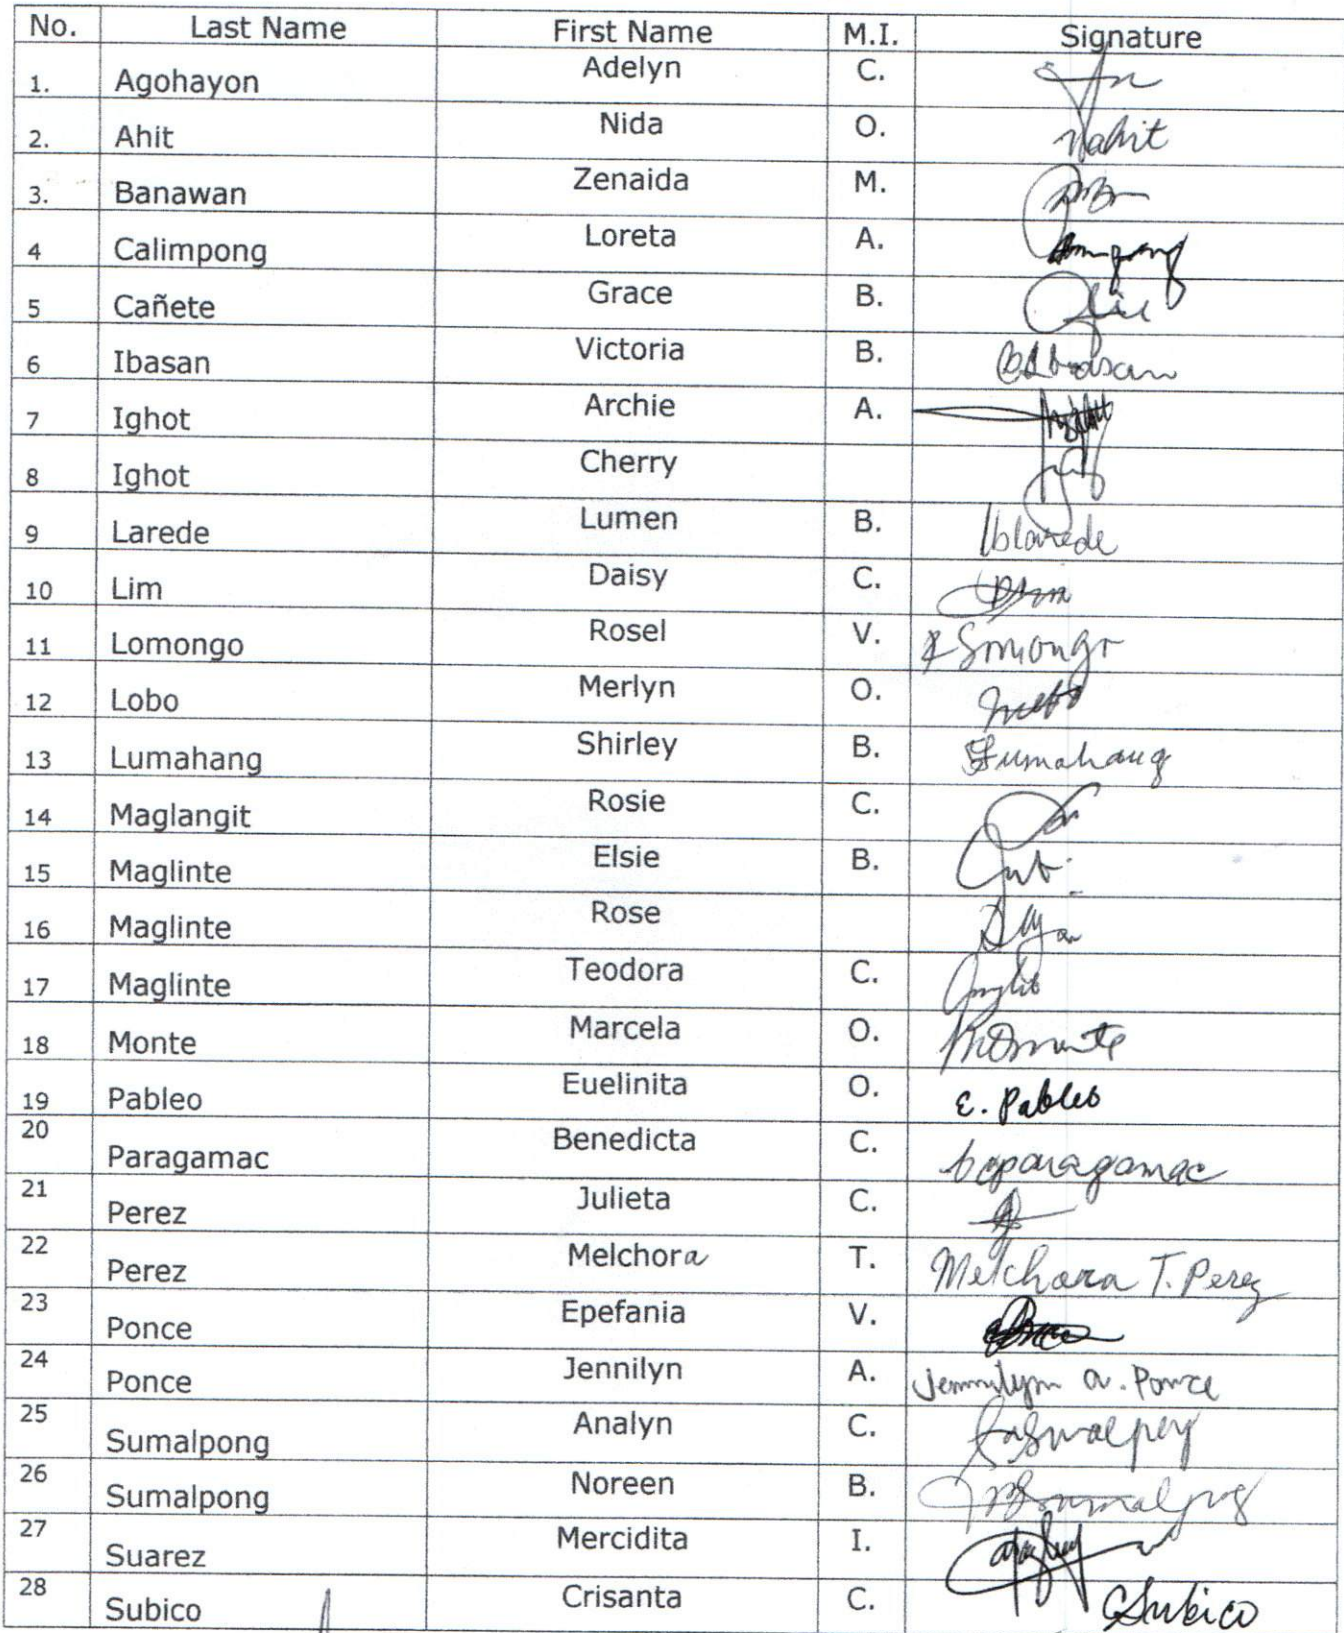 No. Last Name First Name M.I. Signature
1. Agohayon Adelyn C.
2. Ahit Nida O. nahit
3. Banawan Zenaida M.
4 Calimpong Loreta A.
5 Cañete Grace B.
6 Ibasan Victoria B.
7 Ighot Archie A.
8 Ighot Cherry
9 Larede Lumen B. lblarede
10 Lim Daisy C.
11 Lomongo Rosel V.
12 Lobo Merlyn O.
13 Lumahang Shirley B. SLumahang
14 Maglangit Rosie C.
15 Maglinte Elsie B.
16 Maglinte Rose
17 Maglinte Teodora C.
18 Monte Marcela O. MOmonte
19 Pableo Euelinita O. E. Pableo
20 Paragamac Benedicta C. bcparagamac
21 Perez Julieta C.
22 Perez Melchora T. Melchora T. Perez
23 Ponce Epefania V.
24 Ponce Jennilyn A. Jennilyn a. Ponce
25 Sumalpong Analyn C.
26 Sumalpong Noreen B.
27 Suarez Mercidita I.
28 Subico Crisanta C. CSubico